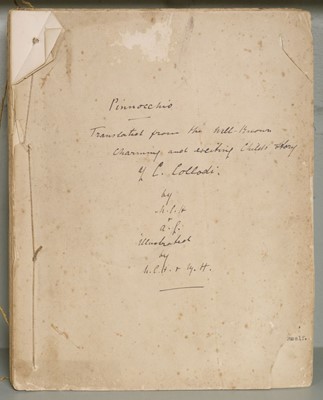 Pinnocchio
Translated from the well known
charming and exciting Child's story
by C. Collodi.
by
M.C.H
+
a.
illustrated
by
M.C.H. + M.H.